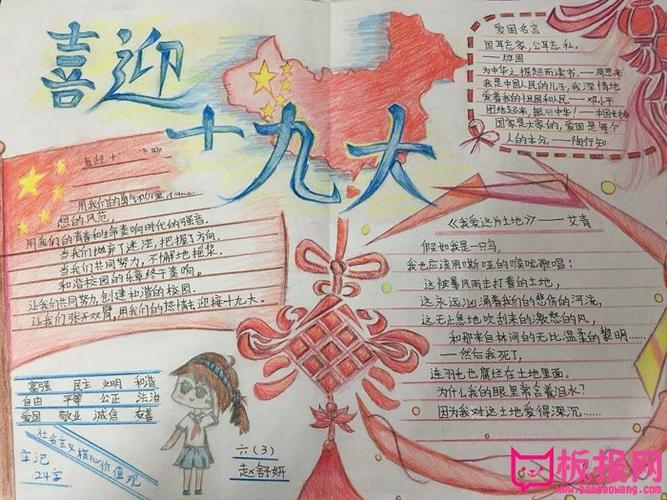 喜迎
十九大
爱国名言
国耳忘家,公耳忘私。
——班固
为中华之崛起而读书——周恩来
我是中国人民的儿子,我深情地
爱着我的祖国和人民——邓小平
团结起来,振兴中华!
国家是大家的,爱国是每个
人的本分。——陶行知
喜迎十
用我们的勇气和
想的风范,
用我们的青春和生命奏响时代的强音。
当我们抛弃了迷茫,把握了方向,
当我们共同努力,不懈地摇桨,
和谐校园的乐章终于奏响。
让我们共同努力,创建和谐的校园。
让我们张开双臂,用我们的热情去迎接十九大。
《我爱这片土地》——艾青
假如我是一只鸟,
我也应该用嘶哑的喉咙歌唱:
这被暴风雨击打着的土地,
这永远汹涌着我们的悲伤的河流,
这无止息地吹刮来的激怒的风,
和那来自林间的无比温柔的黎明……
——然后我死了,
连羽毛也腐烂在土地里面。
为什么我的眼里常含着泪水?
因为我对这土地爱得深沉……
富强 民主 文明 和谐
自由 平等 公正 法治
爱国 敬业 诚信 友善
社会主义核心价值观
牢记
24字
六(3)
赵舒妍
板报网
www.banbaowang.com